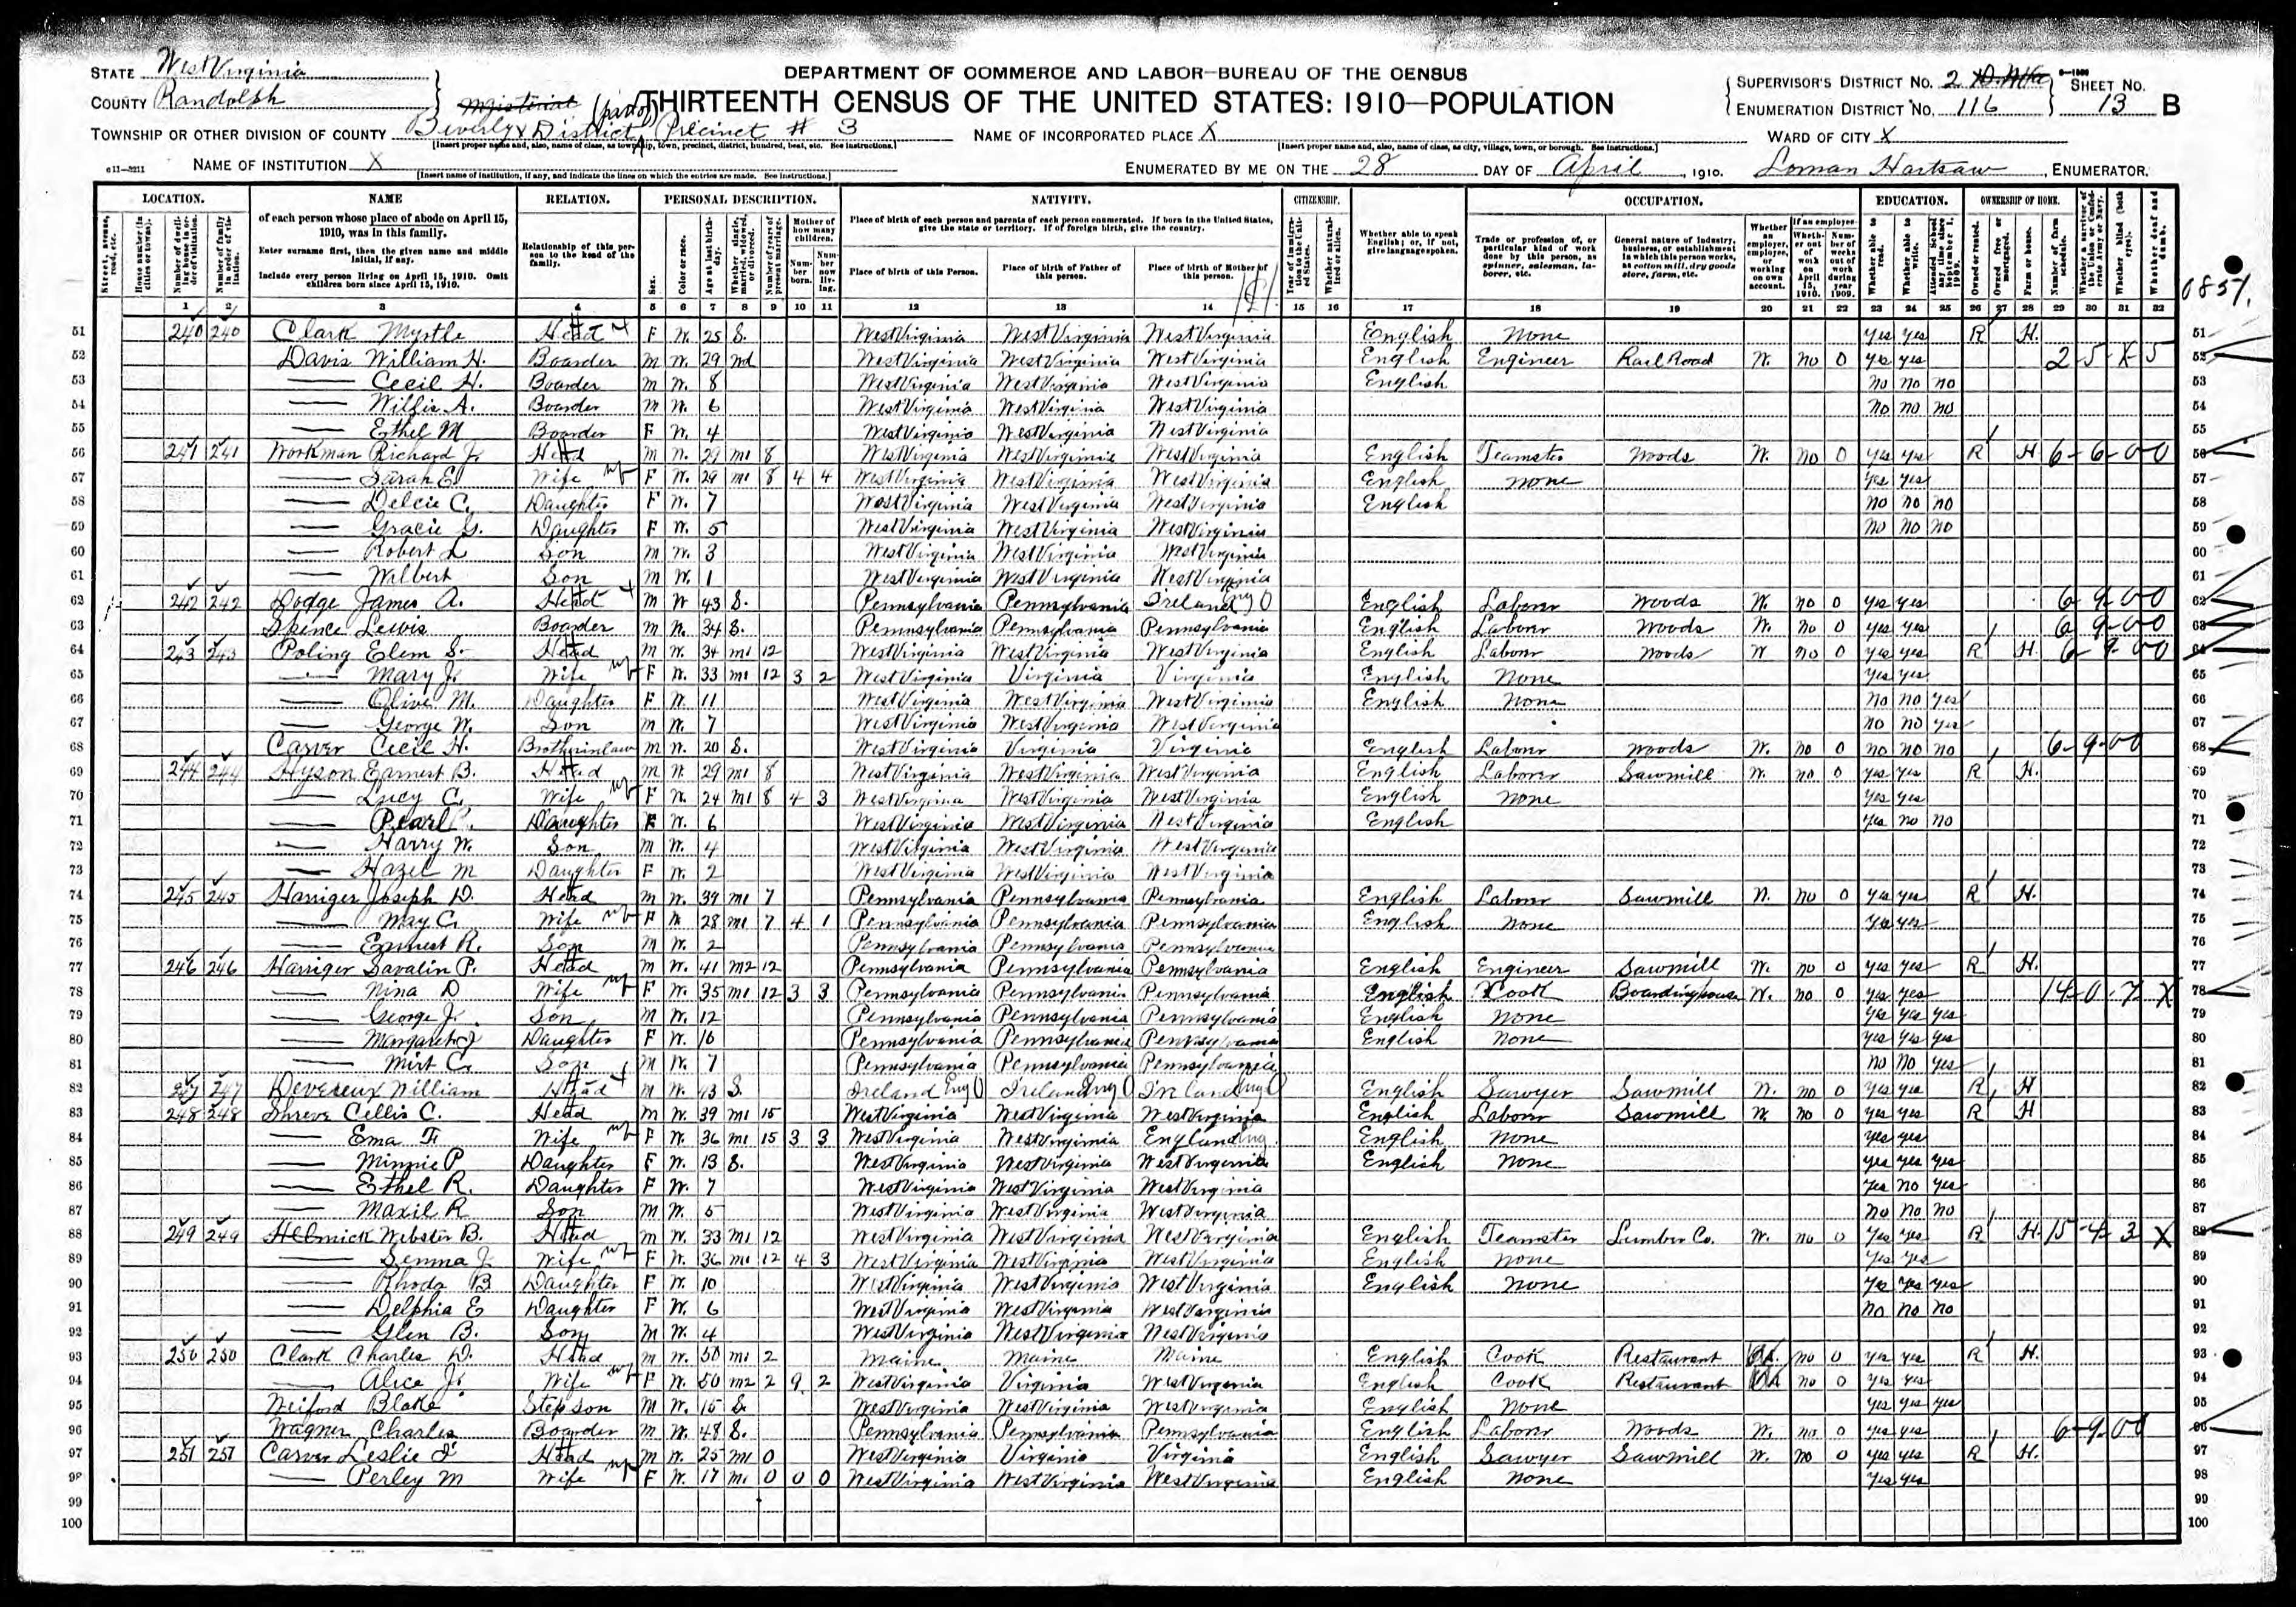 STATE West Virginia
COUNTY Randolph
DEPARTMENT OF COMMERCE AND LABOR—BUREAU OF THE CENSUS
THIRTEENTH CENSUS OF THE UNITED STATES: 1910—POPULATION
SUPERVISOR'S DISTRICT No. 2
ENUMERATION DISTRICT No. 116
SHEET No. 13 B
TOWNSHIP OR OTHER DIVISION OF COUNTY Beverly District (part of) Precinct # 3
NAME OF INCORPORATED PLACE X
WARD OF CITY X
NAME OF INSTITUTION X
ENUMERATED BY ME ON THE 28 DAY OF April, 1910. Loman Hartsaw, ENUMERATOR.
LOCATION. NAME RELATION. PERSONAL DESCRIPTION. NATIVITY. CITIZENSHIP. OCCUPATION. EDUCATION. OWNERSHIP OF HOME.
of each person whose place of abode on April 15, 1910, was in this family.
Enter surname first, then the given name and middle initial, if any.
Include every person living on April 15, 1910. Omit children born since April 15, 1910.
Relationship of this person to the head of the family.
Place of birth of each person and parents of each person enumerated. If born in the United States, give the state or territory. If of foreign birth, give the country.
Place of birth of this Person. Place of birth of Father of this person. Place of birth of Mother of this person.
1 2 3 4 5 6 7 8 9 10 11 12 13 14 15 16 17 18 19 20 21 22 23 24 25 26 27 28 29 30 31 32
51 240 240 Clark Myrtle Head F W. 25 S. West Virginia West Virginia West Virginia English None yes yes R H. 51
52 Davis William H. Boarder M W. 29 md West Virginia West Virginia West Virginia English Engineer Rail Road W. no 0 yes yes 2-5-X-5 52
53 —— Cecil H. Boarder M W. 8 West Virginia West Virginia West Virginia English no no no 53
54 —— Willis A. Boarder M W. 6 West Virginia West Virginia West Virginia no no no 54
55 —— Ethel M Boarder F W. 4 West Virginia West Virginia West Virginia 55
56 241 241 Workman Richard J. Head M W. 29 m1 8 West Virginia West Virginia West Virginia English Teamster Woods W. no 0 yes yes R H 6-6-00 56
57 —— Sarah E. Wife F W. 29 m1 8 4 4 West Virginia West Virginia West Virginia English none yes yes 57
58 —— Delcie C. Daughter F W. 7 West Virginia West Virginia West Virginia English no no no 58
59 —— Gracie G. Daughter F W. 5 West Virginia West Virginia West Virginia no no no 59
60 —— Robert L Son M W. 3 West Virginia West Virginia West Virginia 60
61 —— Wilbert Son M W. 1 West Virginia West Virginia West Virginia 61
62 242 242 Dodge James A. Head M W 43 S. Pennsylvania Pennsylvania Ireland Eng English Laborer Woods W. no 0 yes yes 6-9-00 62
63 Spence Lewis Boarder M W. 34 S. Pennsylvania Pennsylvania Pennsylvania English Laborer Woods W. no 0 yes yes 6-9-00 63
64 243 243 Poling Elem S. Head M W. 34 m1 12 West Virginia West Virginia West Virginia English Laborer Woods W no 0 yes yes R H. 6-9-00 64
65 —— Mary J. Wife F W. 33 m1 12 3 2 West Virginia Virginia Virginia English None yes yes 65
66 —— Olive M. Daughter F W. 11 West Virginia West Virginia West Virginia English None no no yes 66
67 —— George W. Son M W. 7 West Virginia West Virginia West Virginia no no yes 67
68 Carver Cecil H. Brotherinlaw M W. 20 S. West Virginia Virginia Virginia English Laborer Woods W. no 0 no no no 6-9-00 68
69 244 244 Hyson Earnest B. Head M W. 29 m1 8 West Virginia West Virginia West Virginia English Laborer Sawmill W. no 0 yes yes R H. 69
70 —— Lucy C. Wife F W. 24 m1 8 4 3 West Virginia West Virginia West Virginia English none yes yes 70
71 —— Pearl Daughter F W. 6 West Virginia West Virginia West Virginia English yes no no 71
72 —— Harry W. Son M W. 4 West Virginia West Virginia West Virginia 72
73 —— Hazel M Daughter F W. 2 West Virginia West Virginia West Virginia 73
74 245 245 Harriger Joseph D. Head M W. 39 m1 7 Pennsylvania Pennsylvania Pennsylvania English Laborer Sawmill W. no 0 yes yes R H. 74
75 —— May C. Wife F W 28 m1 7 4 1 Pennsylvania Pennsylvania Pennsylvania English None yes yes 75
76 —— Earnest R. Son M W. 2 Pennsylvania Pennsylvania Pennsylvania 76
77 246 246 Harriger Savalin P. Head M W. 41 m2 12 Pennsylvania Pennsylvania Pennsylvania English Engineer Sawmill W. no 0 yes yes R H. 77
78 —— Nina D Wife F W. 35 m1 12 3 3 Pennsylvania Pennsylvania Pennsylvania English Cook Boardinghouse W. no 0 yes yes 14-0-7 X 78
79 —— George J. Son M W. 12 Pennsylvania Pennsylvania Pennsylvania English none yes yes yes 79
80 —— Margaret J Daughter F W. 10 Pennsylvania Pennsylvania Pennsylvania English none yes yes yes 80
81 —— Mirt C. Son M W. 7 Pennsylvania Pennsylvania Pennsylvania no no yes 81
82 247 247 Devereux William Head M W. 43 S. Ireland Eng Ireland Eng Ireland Eng English Sawyer Sawmill W. no 0 yes yes R H 82
83 248 248 Shreve Cellis C. Head M W. 39 m1 15 West Virginia West Virginia West Virginia English Laborer Sawmill W. no 0 yes yes R H 83
84 —— Ema F. Wife F W. 36 m1 15 3 3 West Virginia West Virginia England Eng English none yes yes 84
85 —— Minnie P Daughter F W. 13 S. West Virginia West Virginia West Virginia English None yes yes yes 85
86 —— Ethel R. Daughter F W. 7 West Virginia West Virginia West Virginia yes no yes 86
87 —— Maxil R Son M W. 5 West Virginia West Virginia West Virginia no no no 87
88 249 249 Helmick Webster B. Head M W. 33 m1 12 West Virginia West Virginia West Virginia English Teamster Lumber Co. W. no 0 yes yes R H. 15-4-3 X 88
89 —— J Wife F W. 36 m1 12 4 3 West Virginia West Virginia West Virginia English none yes yes 89
90 —— Rhoda B. Daughter F W. 10 West Virginia West Virginia West Virginia English none yes yes yes 90
91 —— Delphia E Daughter F W. 6 West Virginia West Virginia West Virginia no no no 91
92 —— Glen B. Son M W. 4 West Virginia West Virginia West Virginia 92
93 250 250 Clark Charles D. Head M W. 50 m1 2 Maine Maine Maine English Cook Restaurant no 0 yes yes R H. 93
94 —— Alice J. Wife F W. 50 m2 2 9 2 West Virginia Virginia West Virginia English Cook Restaurant no 0 yes yes 94
95 Weiford Blake Stepson M W. 15 S. West Virginia West Virginia West Virginia English None yes yes yes 95
96 Wagner Charles Boarder M W. 48 S. Pennsylvania Pennsylvania Pennsylvania English Laborer Woods W. no 0 yes yes 6-9-00 96
97 251 251 Carver Leslie Head M W. 25 m1 0 West Virginia Virginia Virginia English Sawyer Sawmill W. no 0 yes yes R H. 97
98 —— Perley M Wife F W. 17 m1 0 0 0 West Virginia West Virginia West Virginia English none yes yes 98
99 99
100 100